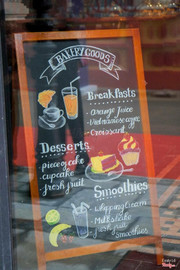 BAKERY GOODS
Breakfasts
- Orange juice
- Vietnamese coffee
- Croissant
Desserts
- piece of cake
- cupcake
- fresh fruit
Smoothies
- whipping cream
- Milkshake
- fresh fruit
Smoothies